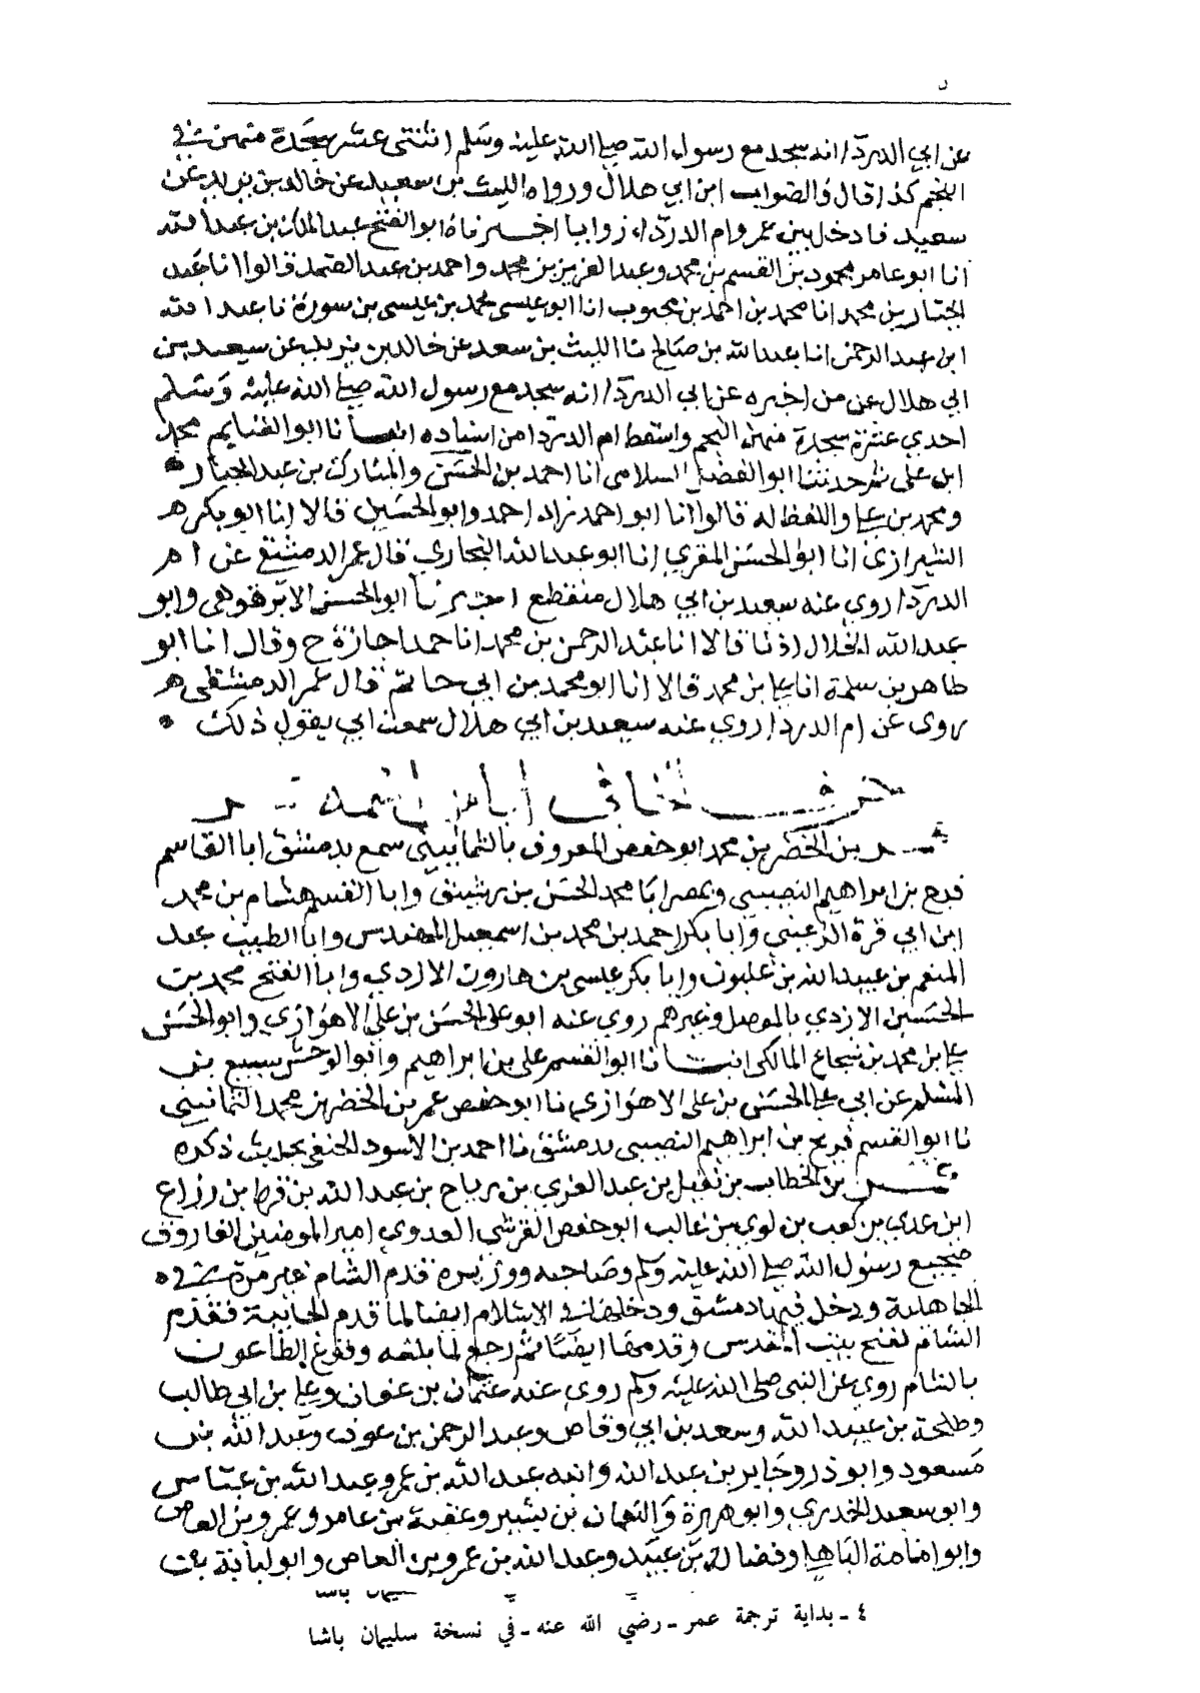 عن ابي الدردا انه سجد مع رسول الله صلى الله عليه وسلم اثنتى عشر سجدة منهن في
النجم كذا قال والصواب ابن ابي هلال ورواه الليث بن سعيد عن خالد بن يزيد عن
سعيد فادخل بين عمر وام الدردا زوابا اخبرناه ابو الفتح عبد الملك بن عبد الله
انا ابو عامر محمود بن القسم بن محمد وعبد العزيز بن محمد واحمد بن عبد الصمد قالوا انا عبد
الجبار بن محمد انا محمد بن احمد بن محبوب انا ابو عيسى محمد بن عيسى بن سورة نا عبد الله
ابن عبد الرحمن انا عبد الله بن صالح نا الليث بن سعد عن خالد بن يزيد عن سعيد بن
ابي هلال عن من اخبره عن ابي الدردا انه سجد مع رسول الله صلى الله عليه وسلم
احدي عشرة سجدة منهن النجم واسقط ام الدردا من اسناده انبأنا ابو الغنايم محمد
ابن على ثم حدثنا ابو الفضل السلامى انا احمد بن الحسن والمبارك بن عبد الجبار
ومحمد بن علي واللفظ له قالوا انا ابو احمد زاد احمد وابو الحسين قالا انا ابو بكر
الشيرازى انا ابو الحسن المقري انا ابو عبد الله البخاري قال عمر الدمشقي عن ام
الدردا روي عنه سعيد بن ابي هلال منقطع اخبرنا ابو الحسن الابرقوهى وابو
عبد الله الخلال اذنا قالا انا عبد الرحمن بن محمد انا حمد اجازة ح وقال انا ابو
طاهر بن سلمة انا علي بن محمد قالا انا ابو محمد بن ابي حاتم قال عمر الدمشقى
روى عن ام الدردا روي عنه سعيد بن ابي هلال سمعت ابي يقول ذلك
حرف الخا في أبا
عمر بن الخضر بن محمد ابو حفص المعروف بالثمانينى سمع بدمشق ابا القاسم
فرج بن ابراهيم النصيبى وبمصر ابا محمد الحسن بن رشيق وابا القسم هشام بن محمد
ابن ابي قرة الرعيني وابا بكر احمد بن محمد بن اسمعيل المهندس وابا الطيب عبد
المنعم بن عبيد الله بن غلبون وابا بكر عيسى بن هارون الازدي وابا الفتح محمد بن
الحسين الازدي بالموصل وغيرهم روي عنه ابو علي الحسن بن علي الاهوازي وابو الحسن
علي بن محمد بن شجاع المالكى انبأنا ابو القسم على بن ابراهيم وابو الوحش سبيع بن
المسلم عن ابي علي الحسن بن على الاهوازي نا ابو حفص عمر بن الخضر بن محمد الثمانيني
نا ابو القسم فرج بن ابراهيم النصيبى بدمشق نا احمد بن الاسود الحنفي بحديث ذكره
عمر بن الخطاب بن نفيل بن عبد العزي بن رياح بن عبد الله بن قرط بن رزاح
ابن عدي بن كعب بن لوي بن غالب ابو حفص القرشي العدوي امير المومنين الفاروق
ضجيع رسول الله صلى الله عليه وسلم وصاحبه ووزيره قدم الشام غير مرة في
الجاهلية ودخل فيها دمشق ودخلها في الاسلام ايضا لما قدم الجابية فقدم
الشام لفتح بيت المقدس وقدمها ايضا ثم رجع لما بلغه وقوع الطاعون
بالشام روي عن النبى صلى الله عليه وسلم روي عنه عثمان بن عفوان وعلي بن ابي طالب
وطلحة بن عبيد الله وسعد بن ابي وقاص وعبد الرحمن بن عوف وعبد الله بن
مسعود وابو ذر وجابر بن عبد الله وابنه عبد الله بن عمر وعبد الله بن عباس
وابو سعيد الخدري وابو هريرة والنعمان بن بشير وعقبة بن عامر وعمرو بن العاص
وابو امامة الباهلي وفضالة بن عبيد وعبد الله بن عمرو بن العاص وابو لبابة بن
٤ - بداية ترجمة عمر - رضي الله عنه - في نسخة سليمان باشا